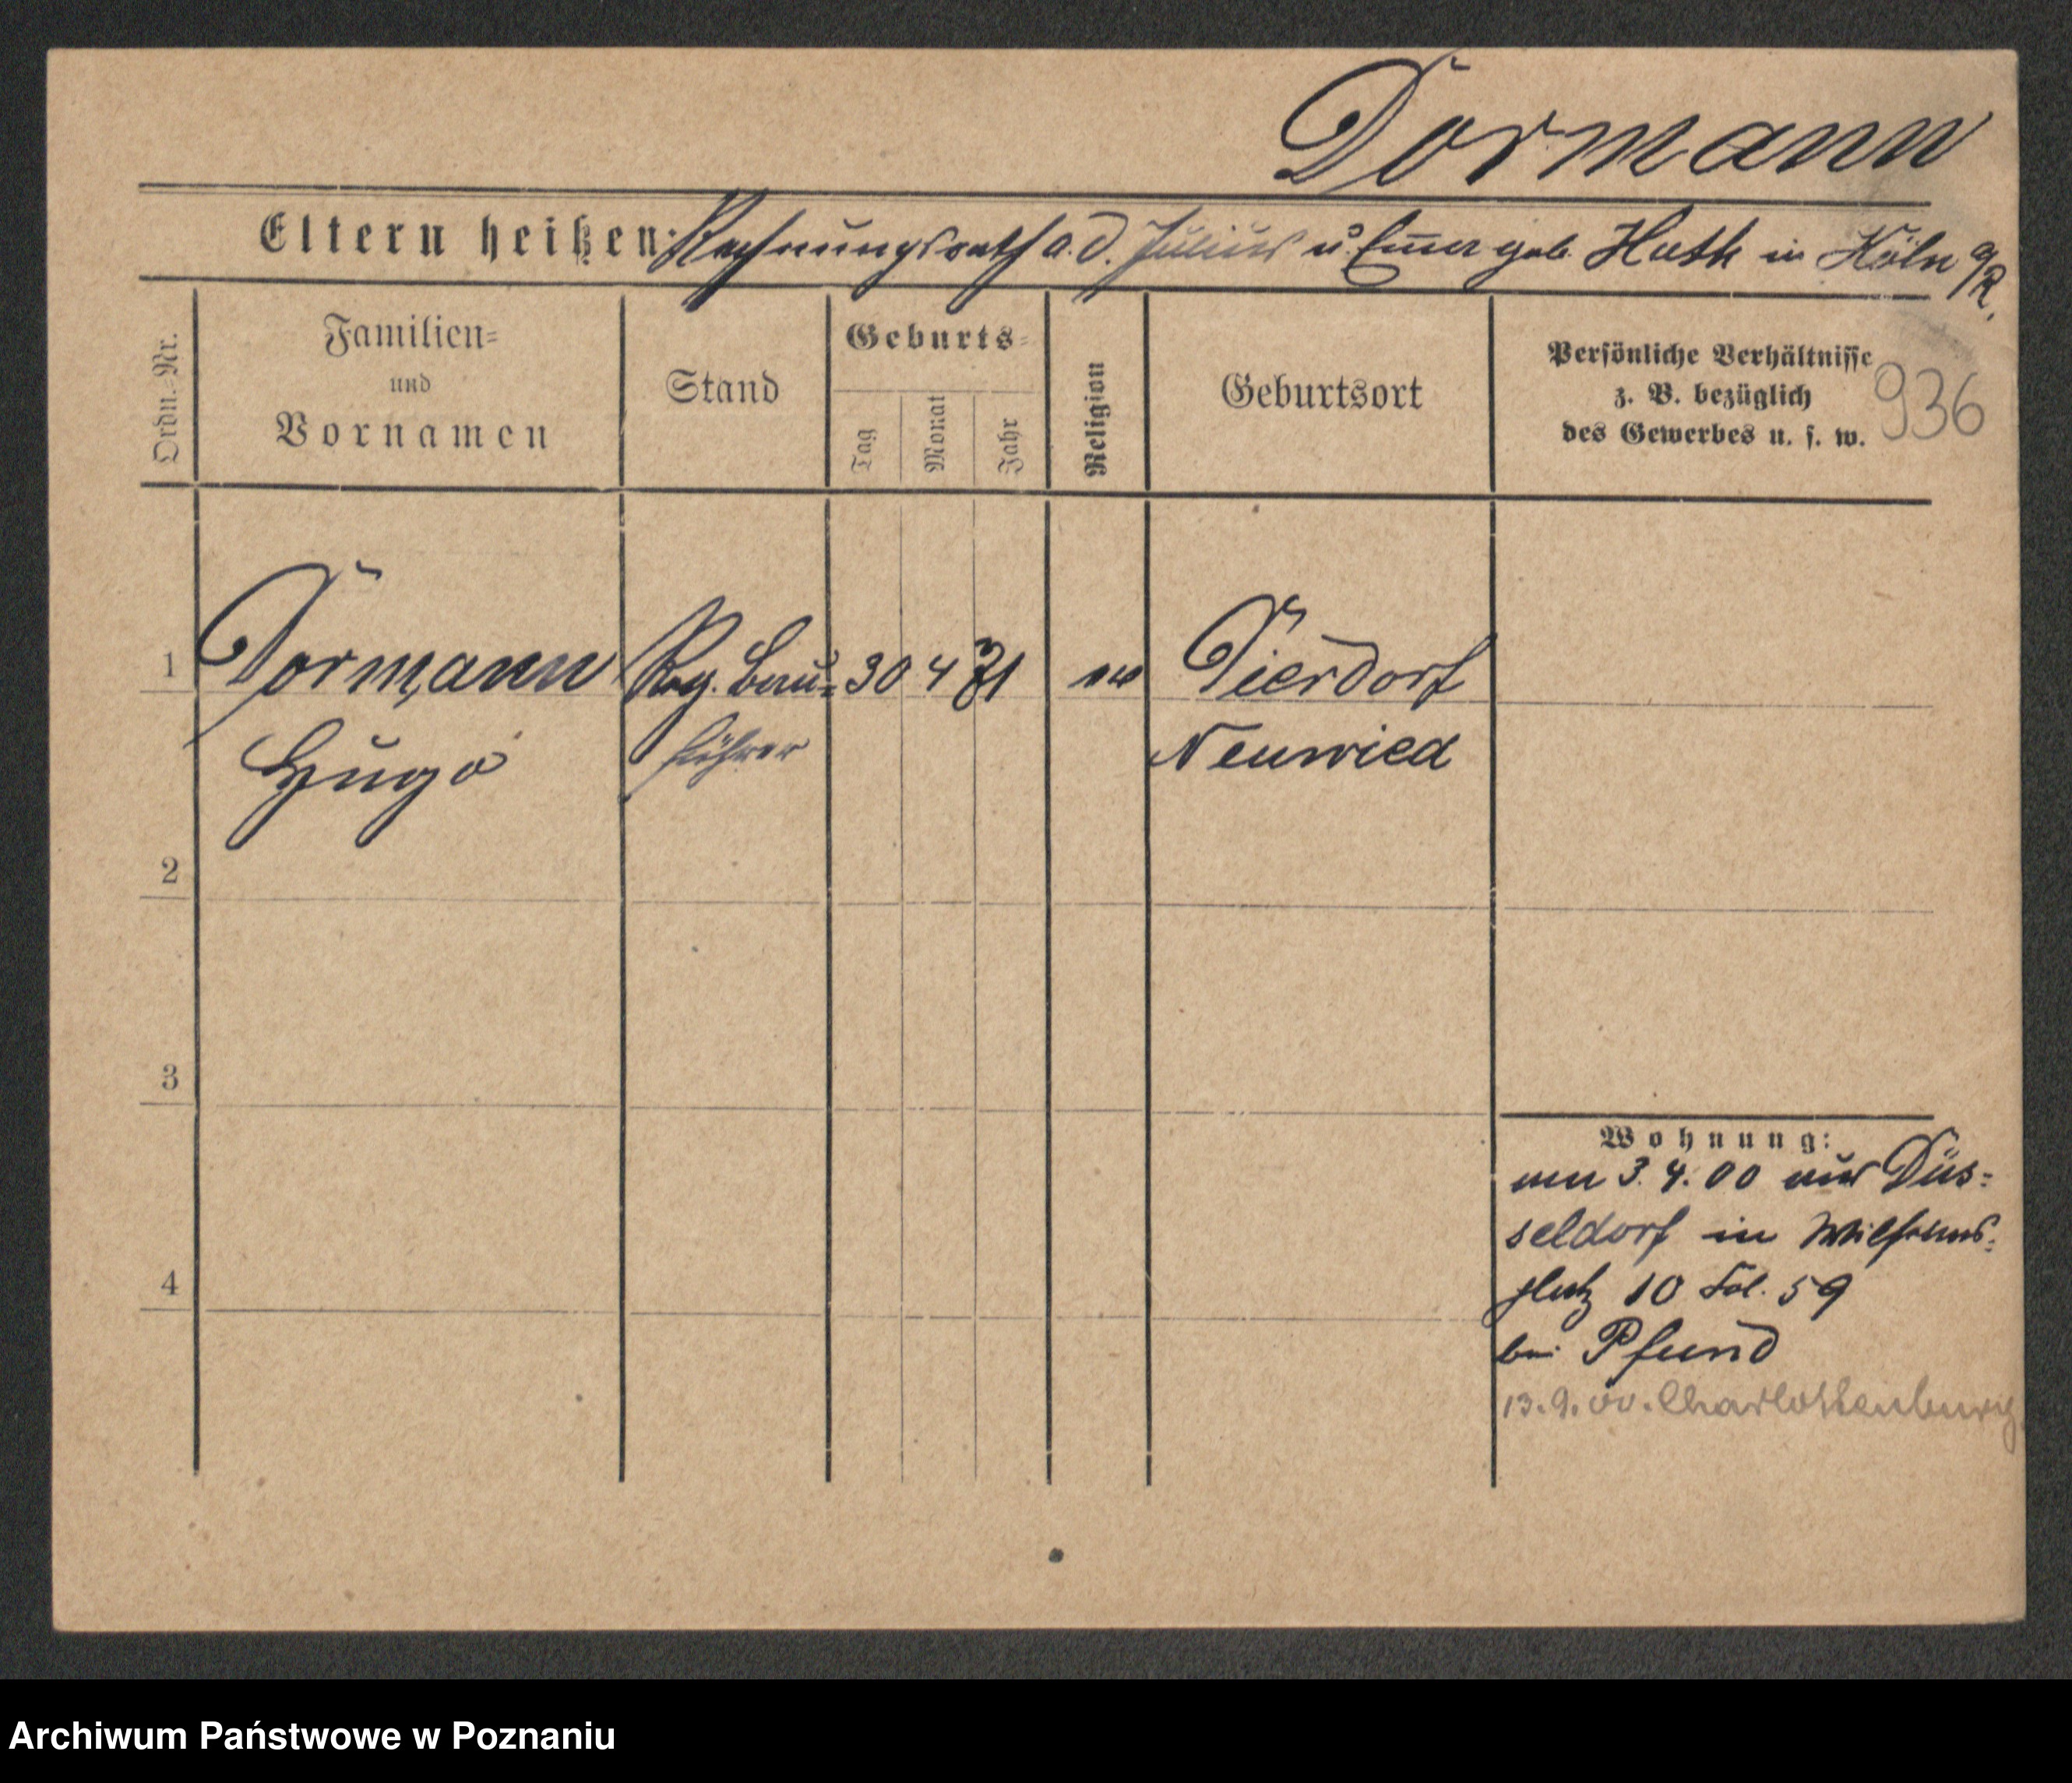 Dormann
Eltern heißen: Rechnungsrath a. D. Julius u. Emma geb. Huth in Köln a/R.
Ordn.-Nr.
Familien=
und
Vornamen
Stand
Geburts=
Tag
Monat
Jahr
Religion
Geburtsort
Persönliche Verhältnisse
z. B. bezüglich
des Gewerbes u. s. w.
936
1
Dormann
Reg. Bau=
30
4
71
ev
Dierdorf
Hugo
führer
Neuwied
2
3
4
Wohnung:
am 3. 4. 00 aus Düs=
seldorf in Wilhelms=
platz 10 Fol. 59
bei Pfund
13. 9. 00. Charlottenburg
Archiwum Państwowe w Poznaniu